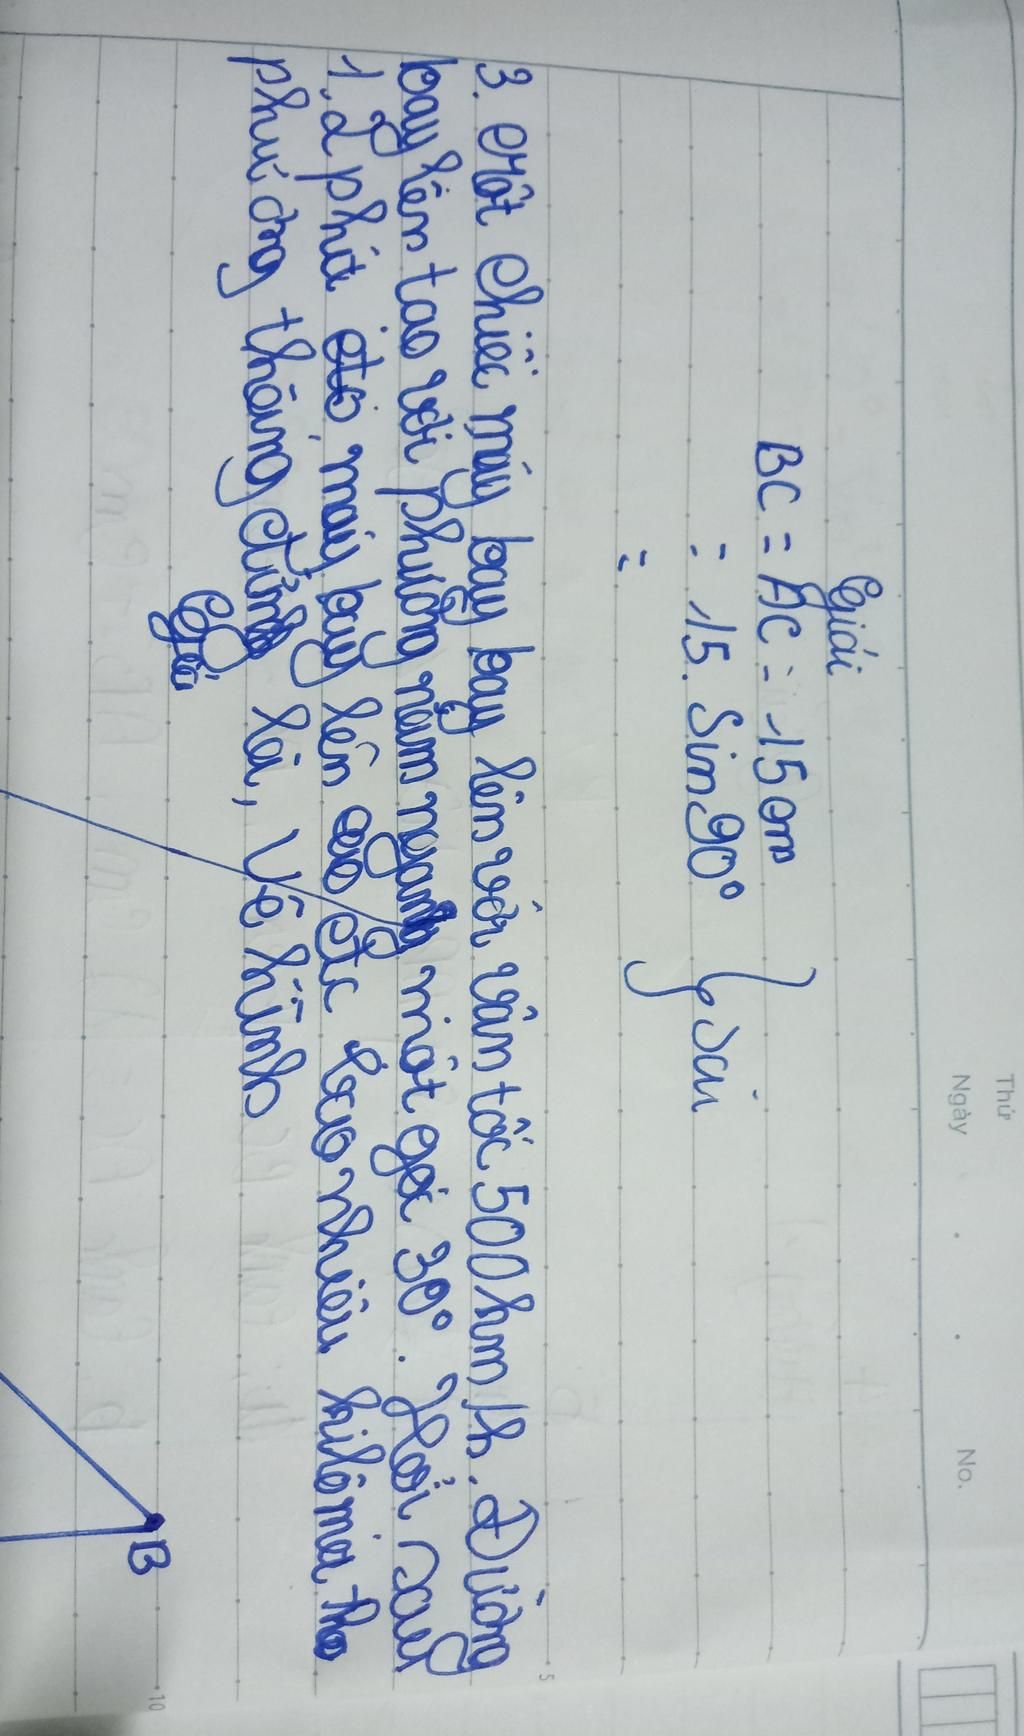 Thứ
Ngày . . No.
Giải
BC = AC = 15 cm
= 15. Sin 90° } sai
=
5
3. Một chiếc máy bay bay lên với vân tốc 500 km/h. Đường
bay lên tao với phương nằm ngang một gói 30°. Hỏi sau
1,2 phút đó, máy bay lên cao đc bao nhiêu kilômét theo
phương thẳng đứng là, vẽ hình
Giải
10
B